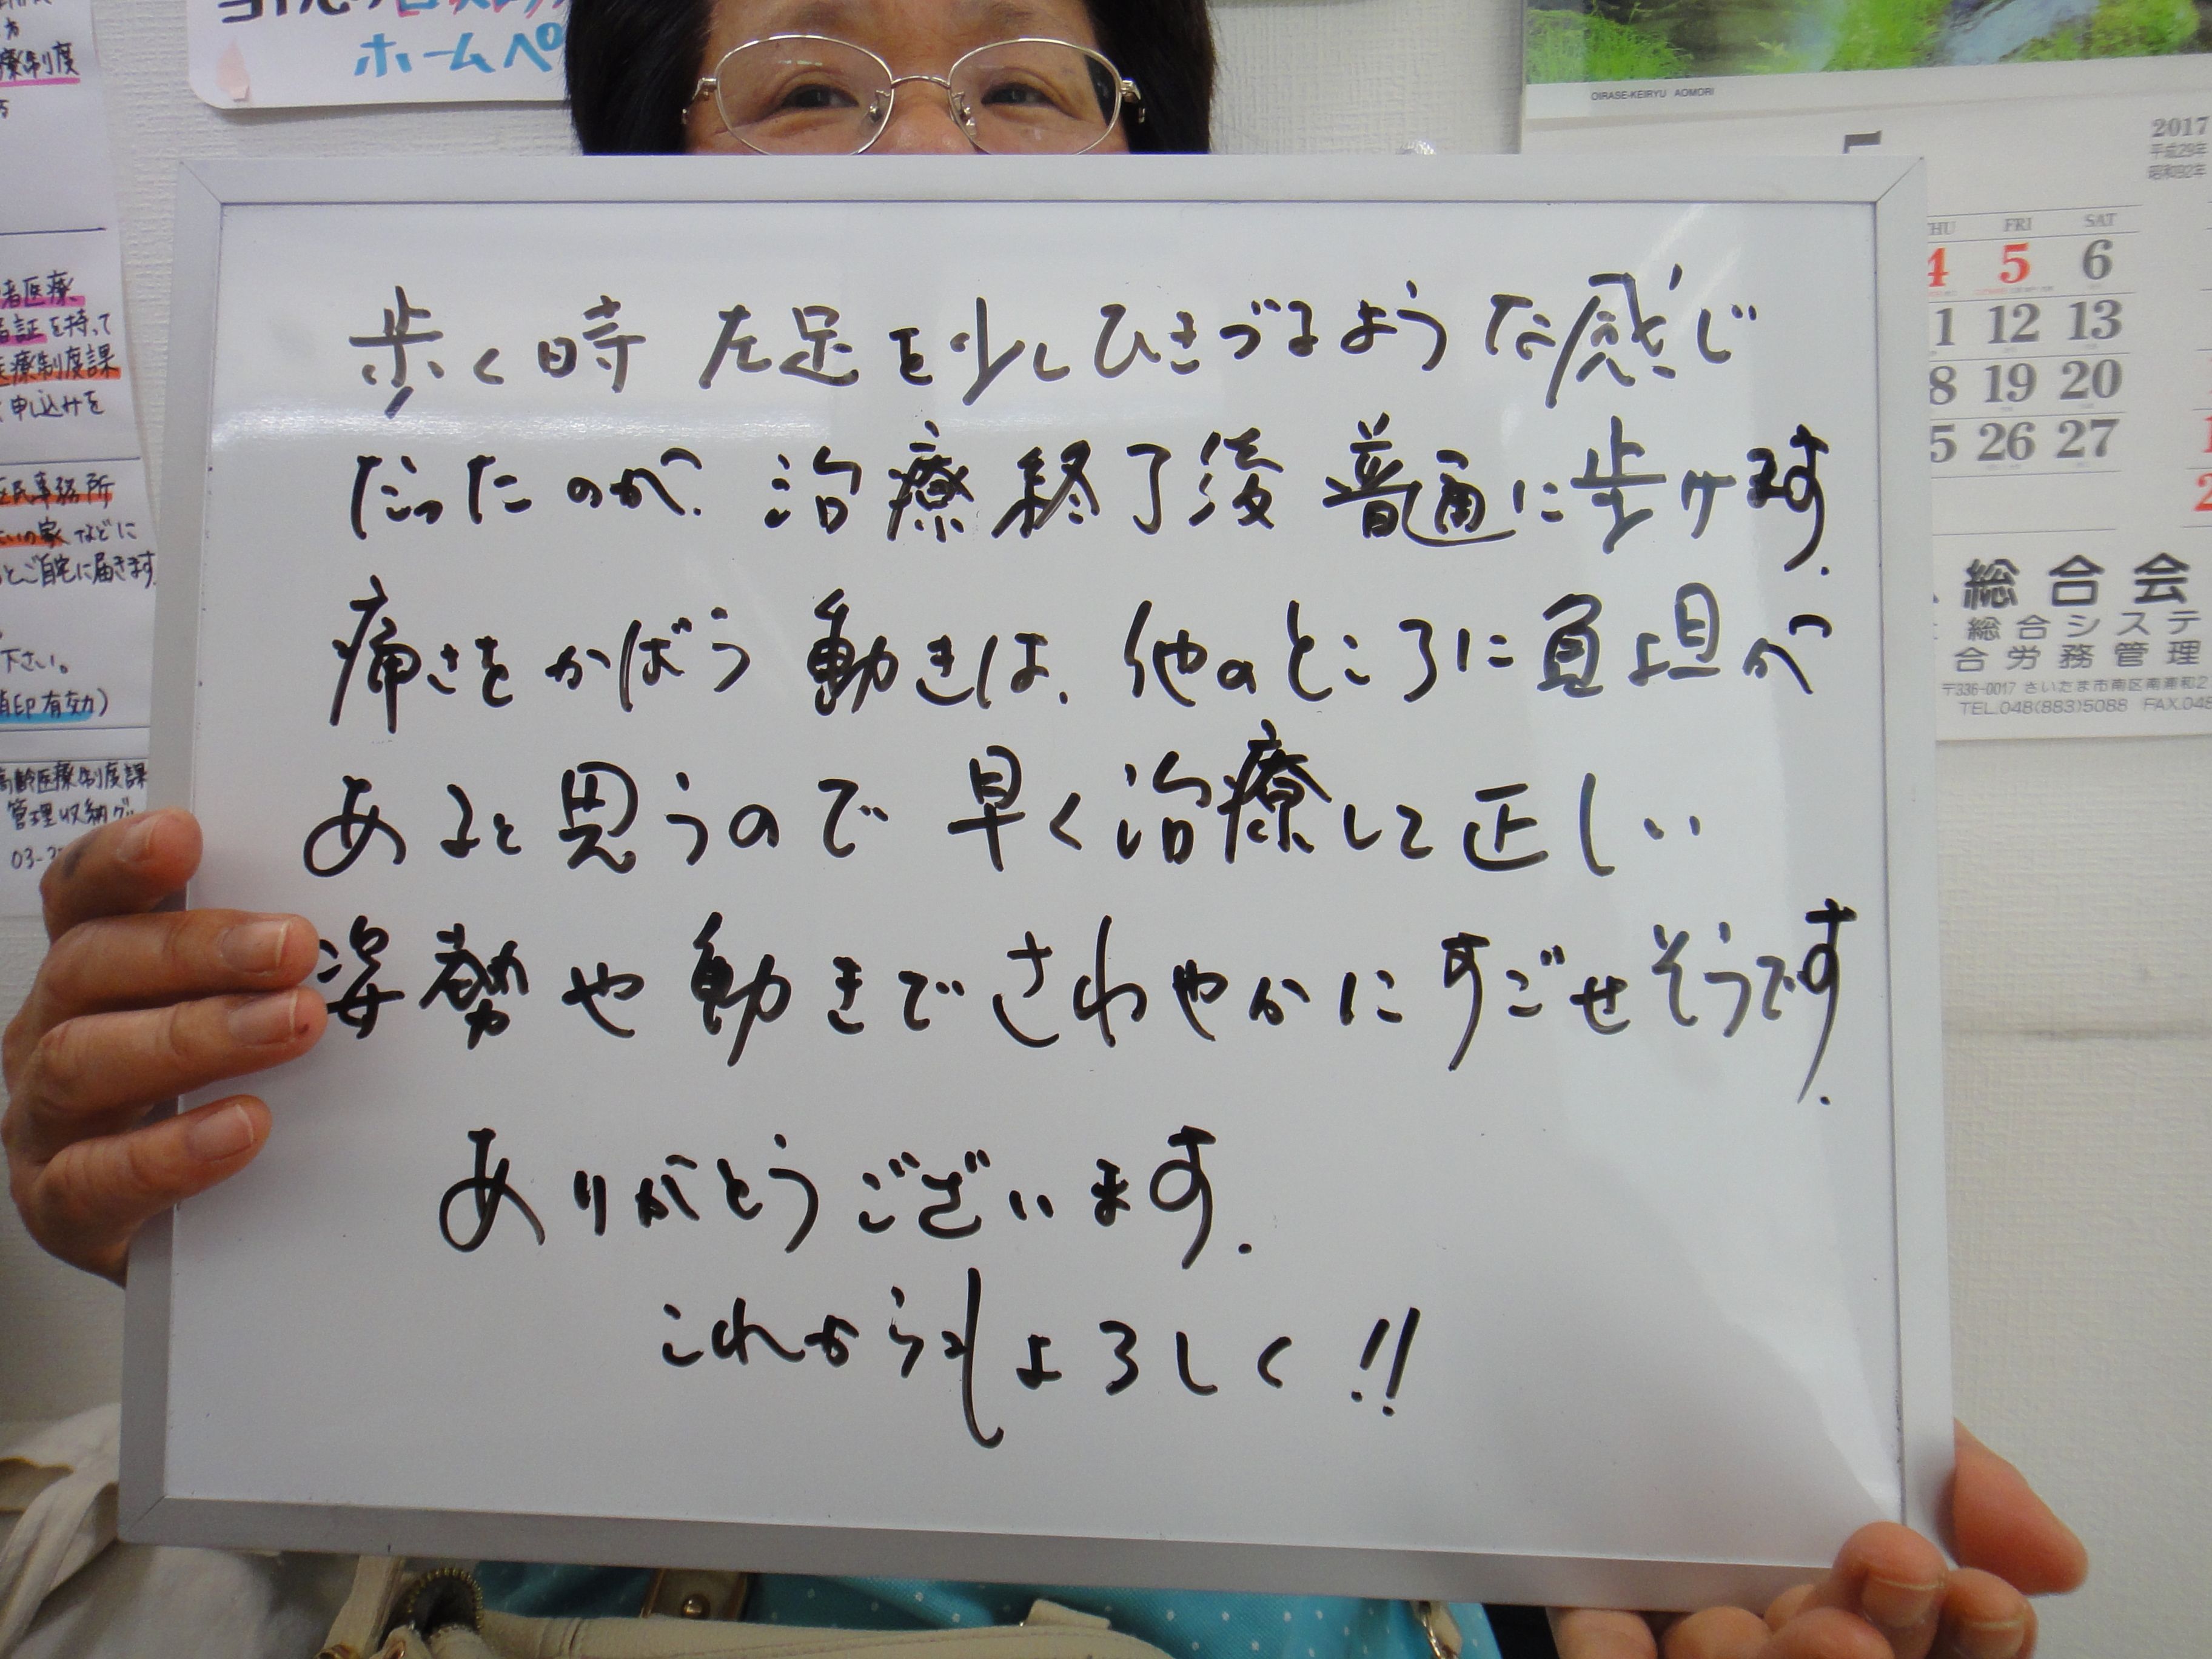 ホームペ
療制度
者医療
証を持って
療制度課
申込みを
区民事務所
いの家などに
とご自宅に届きます
下さい。
消印有効)
高齢医療制度課
管理収納グ
03-3
歩く時 左足を少しひきづるような感じ
だったのが、治療終了後 普通に歩けます.
痛さをかばう動きは、他のところに負担が
あると思うので 早く治療して正しい
姿勢や動きでさわやかにすごせそうです.
ありがとうございます.
これからもよろしく!!
OIRASE-KEIRYU AOMORI
2017
平成29年
昭和92年
THU FRI SAT
4 5 6
1 12 13
8 19 20
5 26 27
総合会
総合システ
合労務管理
〒336-0017 さいたま市南区南浦和2
TEL.048(883)5088 FAX.048